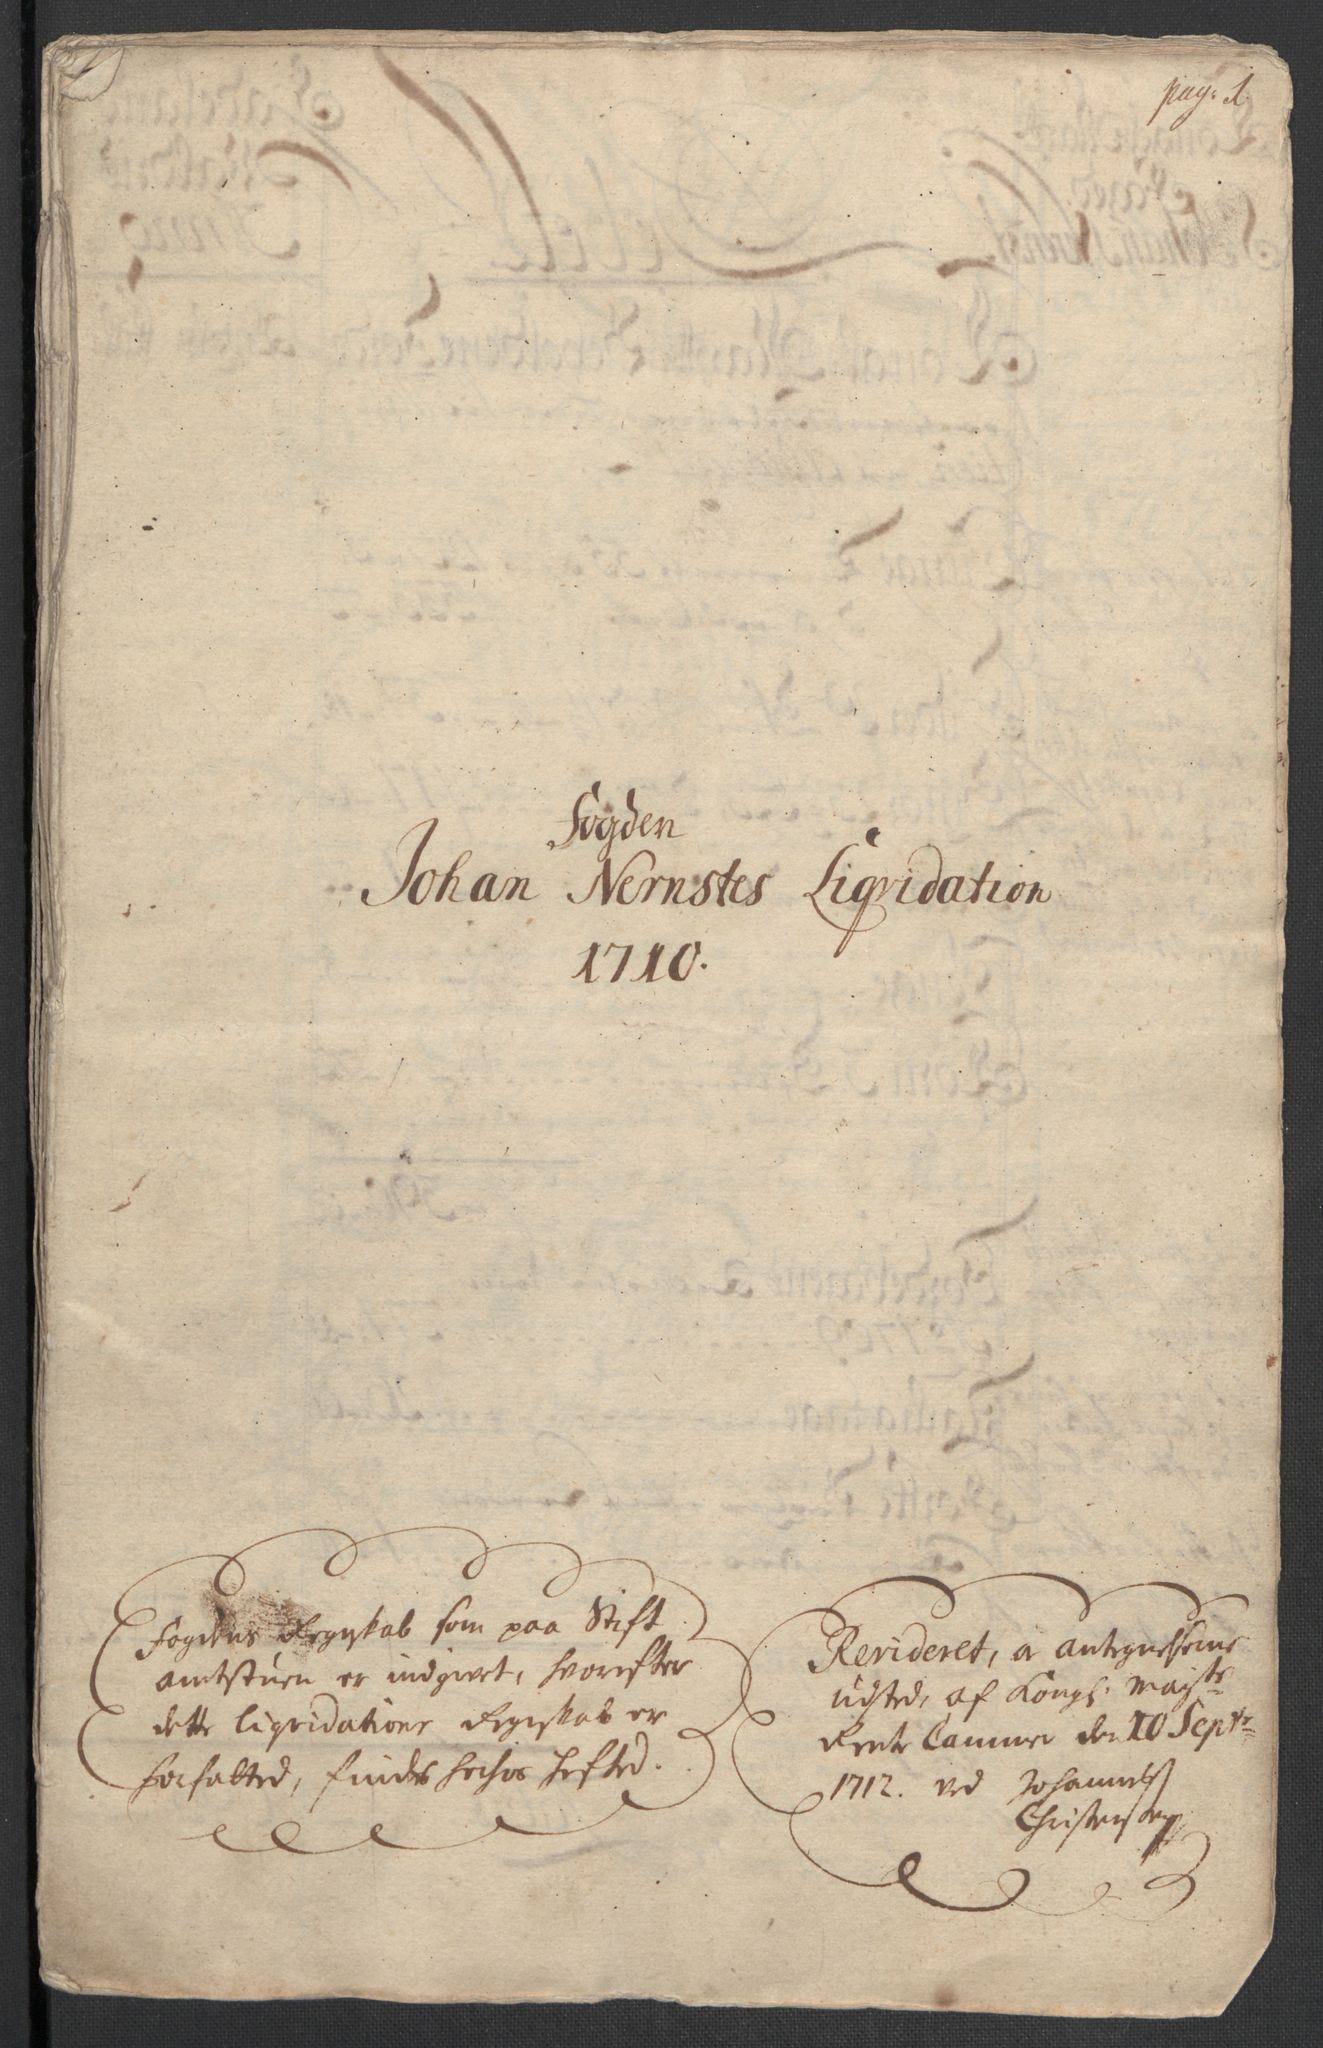 pag: 1.
Fogden
Johan Nernstes Liqvidation
1710.
Fogdens Regnskab som paa Stift
amtstuen er indgivet, hvorefter
dette liqvidations Regnskab er
forfatted, findes herhos hefted.
Revideret, og antegnelserne
udsted, af Kongl: Mayts
Rente Cammer den 10 Septr
1712. ved Johannes
Christensen